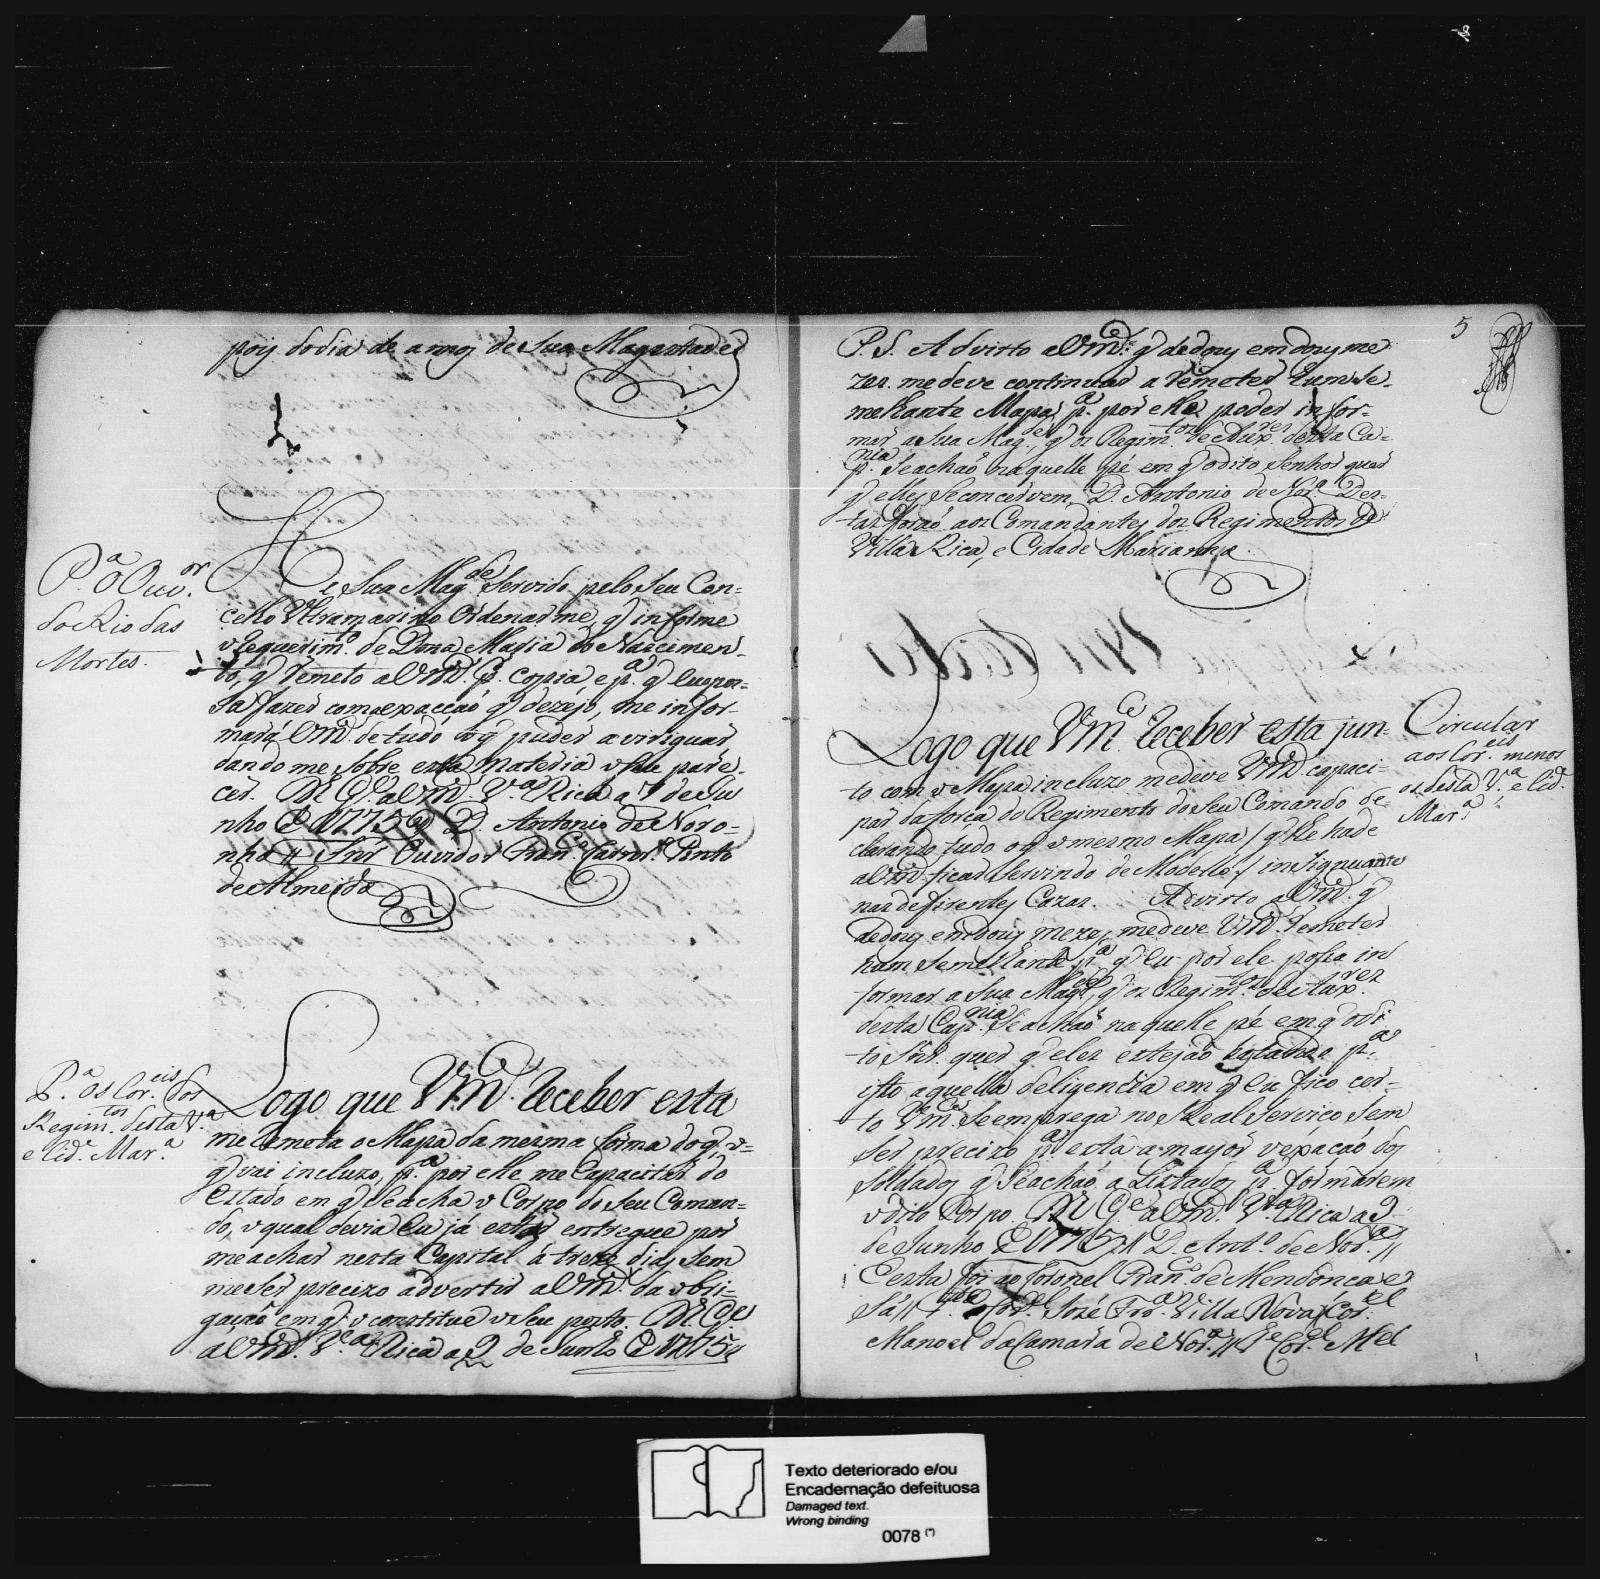 pois do dia de annos de Sua Magestade
P.ª o Ouv.or
do Rio das
Mortes.
He Sua Mag.de Servido pelo Seu Con-
celho Ultramarino Ordenarme, q̃ informe
o Requerim.to de Dona Maria do Nascimen-
to, q̃ Remeto a Vm.ce p. copia e p.ª q̃ eu pos-
sa fazer com a exacção q̃ dezejo, me infor-
mará Vm.ce de tudo o q̃ puder aviriguar
dando me sobre esta materia o seu pare-
cer. D.s G.e a Vm.ce V.ª Rica a de Ju
nho de 1775 // D. Antonio de Noro-
nha // Snr Ouvidor Fran.co Pinto
de Almeida
P.ª os Cor.eis dos
Regim.tos desta V.ª
e Cid.e Mar.ª
Logo que Vm.ce Receber esta
me Remeta o Mapa da mesma forma do q̃ o=
q̃ vai incluzo, p.ª por elle me Capacitar do
Estado em q̃ Se acha o Corpo do Seu Coman-
do, o qual devia eu já estar entregue por
me achar nesta Capital á treze dias, Sem
me Ser precizo advertir a Vm.ce da obri-
gação em q̃ o constitue o Seu posto. D.s G.e
a Vm.ce V.ª Rica a 2 de Junho de 1775
5
P.S. Advirto a Vm.ce q̃ de dous em dous me
zes me deve continuar a Remeter hum Se-
melhante Mapa, p.ª por elle poder infor-
mar a Sua Mag.de, q̃ os Regim.tos de Aux.res desta Ca-
p.nia Se achaõ naquelle pé em q̃ o dito Senhor quer
q̃ elles Se concervem, D. Antonio de Nor.ª Des-
tas foraõ aos Comandantes dos Regimentos de
Villa Rica, e Cidade Marianna.
Circular
aos Cor.eis menos
os desta V.ª e Cid.e
Mar.ª
Logo que Vm.ce Receber esta jun-
to com o Mapa incluzo me deve Vm.ce capaci-
tar da força do Regimento do Seu Comando de-
clarando tudo o q̃ o mesmo Mapa / q̃ lhe hade
a Vm.ce ficar Servindo de Modello / insignuante
nas defirentes Cazas. Advirto a Vm.ce q̃
de dous em dous mezes me deve Vm.ce Remeter
hum Semelhante p.ª q̃ eu por ele possa in
formar a Sua Mag.de, q̃ os Regim.tos de Aux.res
desta Cap.nia Se achaõ naquelle pé em q̃ o di-
to Snr. quer q̃ eles estejão p.ª
isto aquella deligencia em q̃ eu fico cer-
to Vm.ce Se emprega no Real Serviço, Sem
Ser precizo p.ª esta a mayor vexação dos
Soldados q̃ Se achaõ a Listados p.ª formarem
o dito Corpo. D.s G.e a Vm.ce V.ª Rica a 2
de Junho de 1775 // D. Ant.o de Nor.ª //
Esta foi ao Coronel Fran.co de Mendonça e
Sá // José Villa Nova // Cor.el
Manoel da Camara de Nor.ª // T.e Cor.el M.el
Texto deteriorado e/ou
Encadernação defeituosa
Damaged text.
Wrong binding
0078 (*)